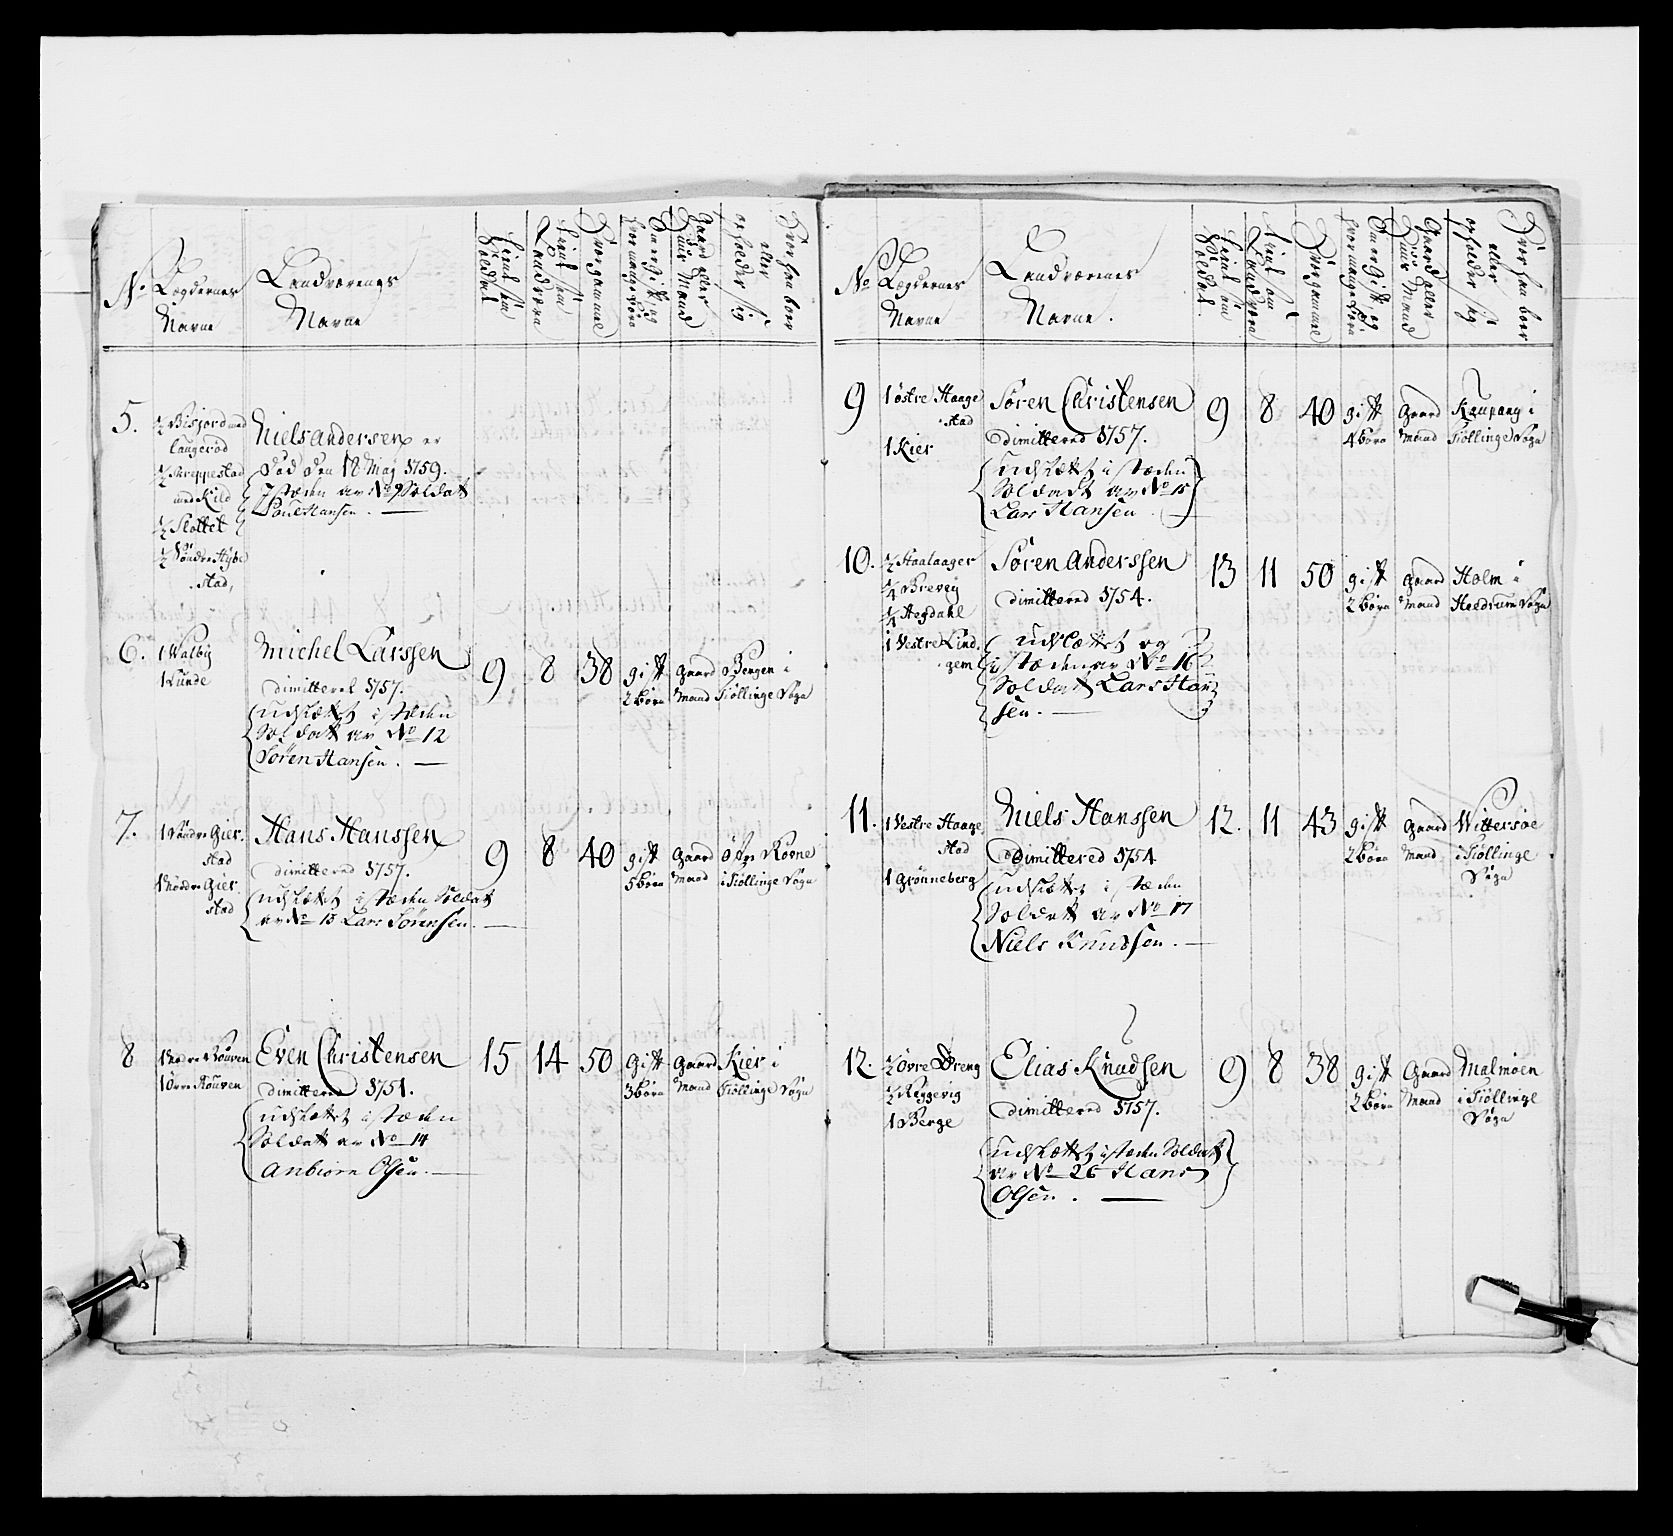 No
Lægdernes
Navne
Landværnes
Navne
tient som
Soldat
tient som
Landværn
Hvor gammel
Om er Gift og
hvor mange Børn
Gaard eller
Huus Mand
Hvor han boer
eller
opholder sig
5.
½ Bisjord med
Laugerød
½ Skreppestad
med Kild
½ Slottet
½ Søndre Hybe
stad,
Niels Andersen er
død den 18 May 1759.
I stæden av No 9 Soldat
Poul Hansen.
6.
1 Walby
1 Lunde
Michel Larssen
dimitteret 1757.
udsættet i stæden
Soldatt av No 12
Søren Hansen.
9
8
38
gift
2 børn
gaard
mand
Bergen i
Tiöllinge Sogn
7.
1 Søndre Gier
stad
1 Nordre Gier
stad
Hans Hanssen
dimittered 1757.
udsættet i stæden Soldat
av No 13 Lars Sörensen.
9
8
40
gift
5 børn
gaard
mand
öfre Røvne
i Tiöllinge Sogn
8
1 Nedre Rouven
1 Övre Rouven
Even Christensen
dimittered 1751.
udsættet i stæden
Soldatt av No 14
Anbiørn Olsen.
15
14
50
gift
3 børn
gaard
mand
Kier i
Tiöllinge Sogn
No
Lægdernes
Navne
Landværnes
Navne.
tient som
Soldat.
tient som
Landværn
Hvor gammel
Om er Gift og
hvor mange Børn
Gaard eller
Huus Mand
Hvor han boer
eller
opholder sig
9
1 østre Haage
stad
1 Kier
Sören Christensen
dimittered 1757.
udsættet i stæden
Soldatt av No 15
Lars Hansen
9
8
40
gift
4 børn
gaard
mand
Kaupang i
Tiöllinge Sogn
10.
½ Haalaager
¼ Brevig
¼ Hegdahl
1 Vestre Lind
gem
Sören Anderssen
dimittered 1754.
udsættet og
i stæden av No 16
Soldatt Lars Han
sen.
13
11
50
gift
2 börn
gaard
mand
Holm i
Hedrum Sogn
11.
1 Vestre Haage
stad
1 Grönneberg
Niels Hanssen
dimittered 1754
udsættet i stæden
Soldatt av No 17
Niels Knudssen.
12.
11
43
gift
2 börn
gaard
mand
Wittersöe
i Tiöllinge
Sogn
12.
½ Övre Dreng
½ Reggevig
1 Berge
Elias Knudsen
dimittered 1757.
udsættet i stæden Soldatt
av No 26 Hans
Olsen.
9
8
38
gift
2 børn
gaard
mand
Malmöen
i Tiöllinge
Sogn